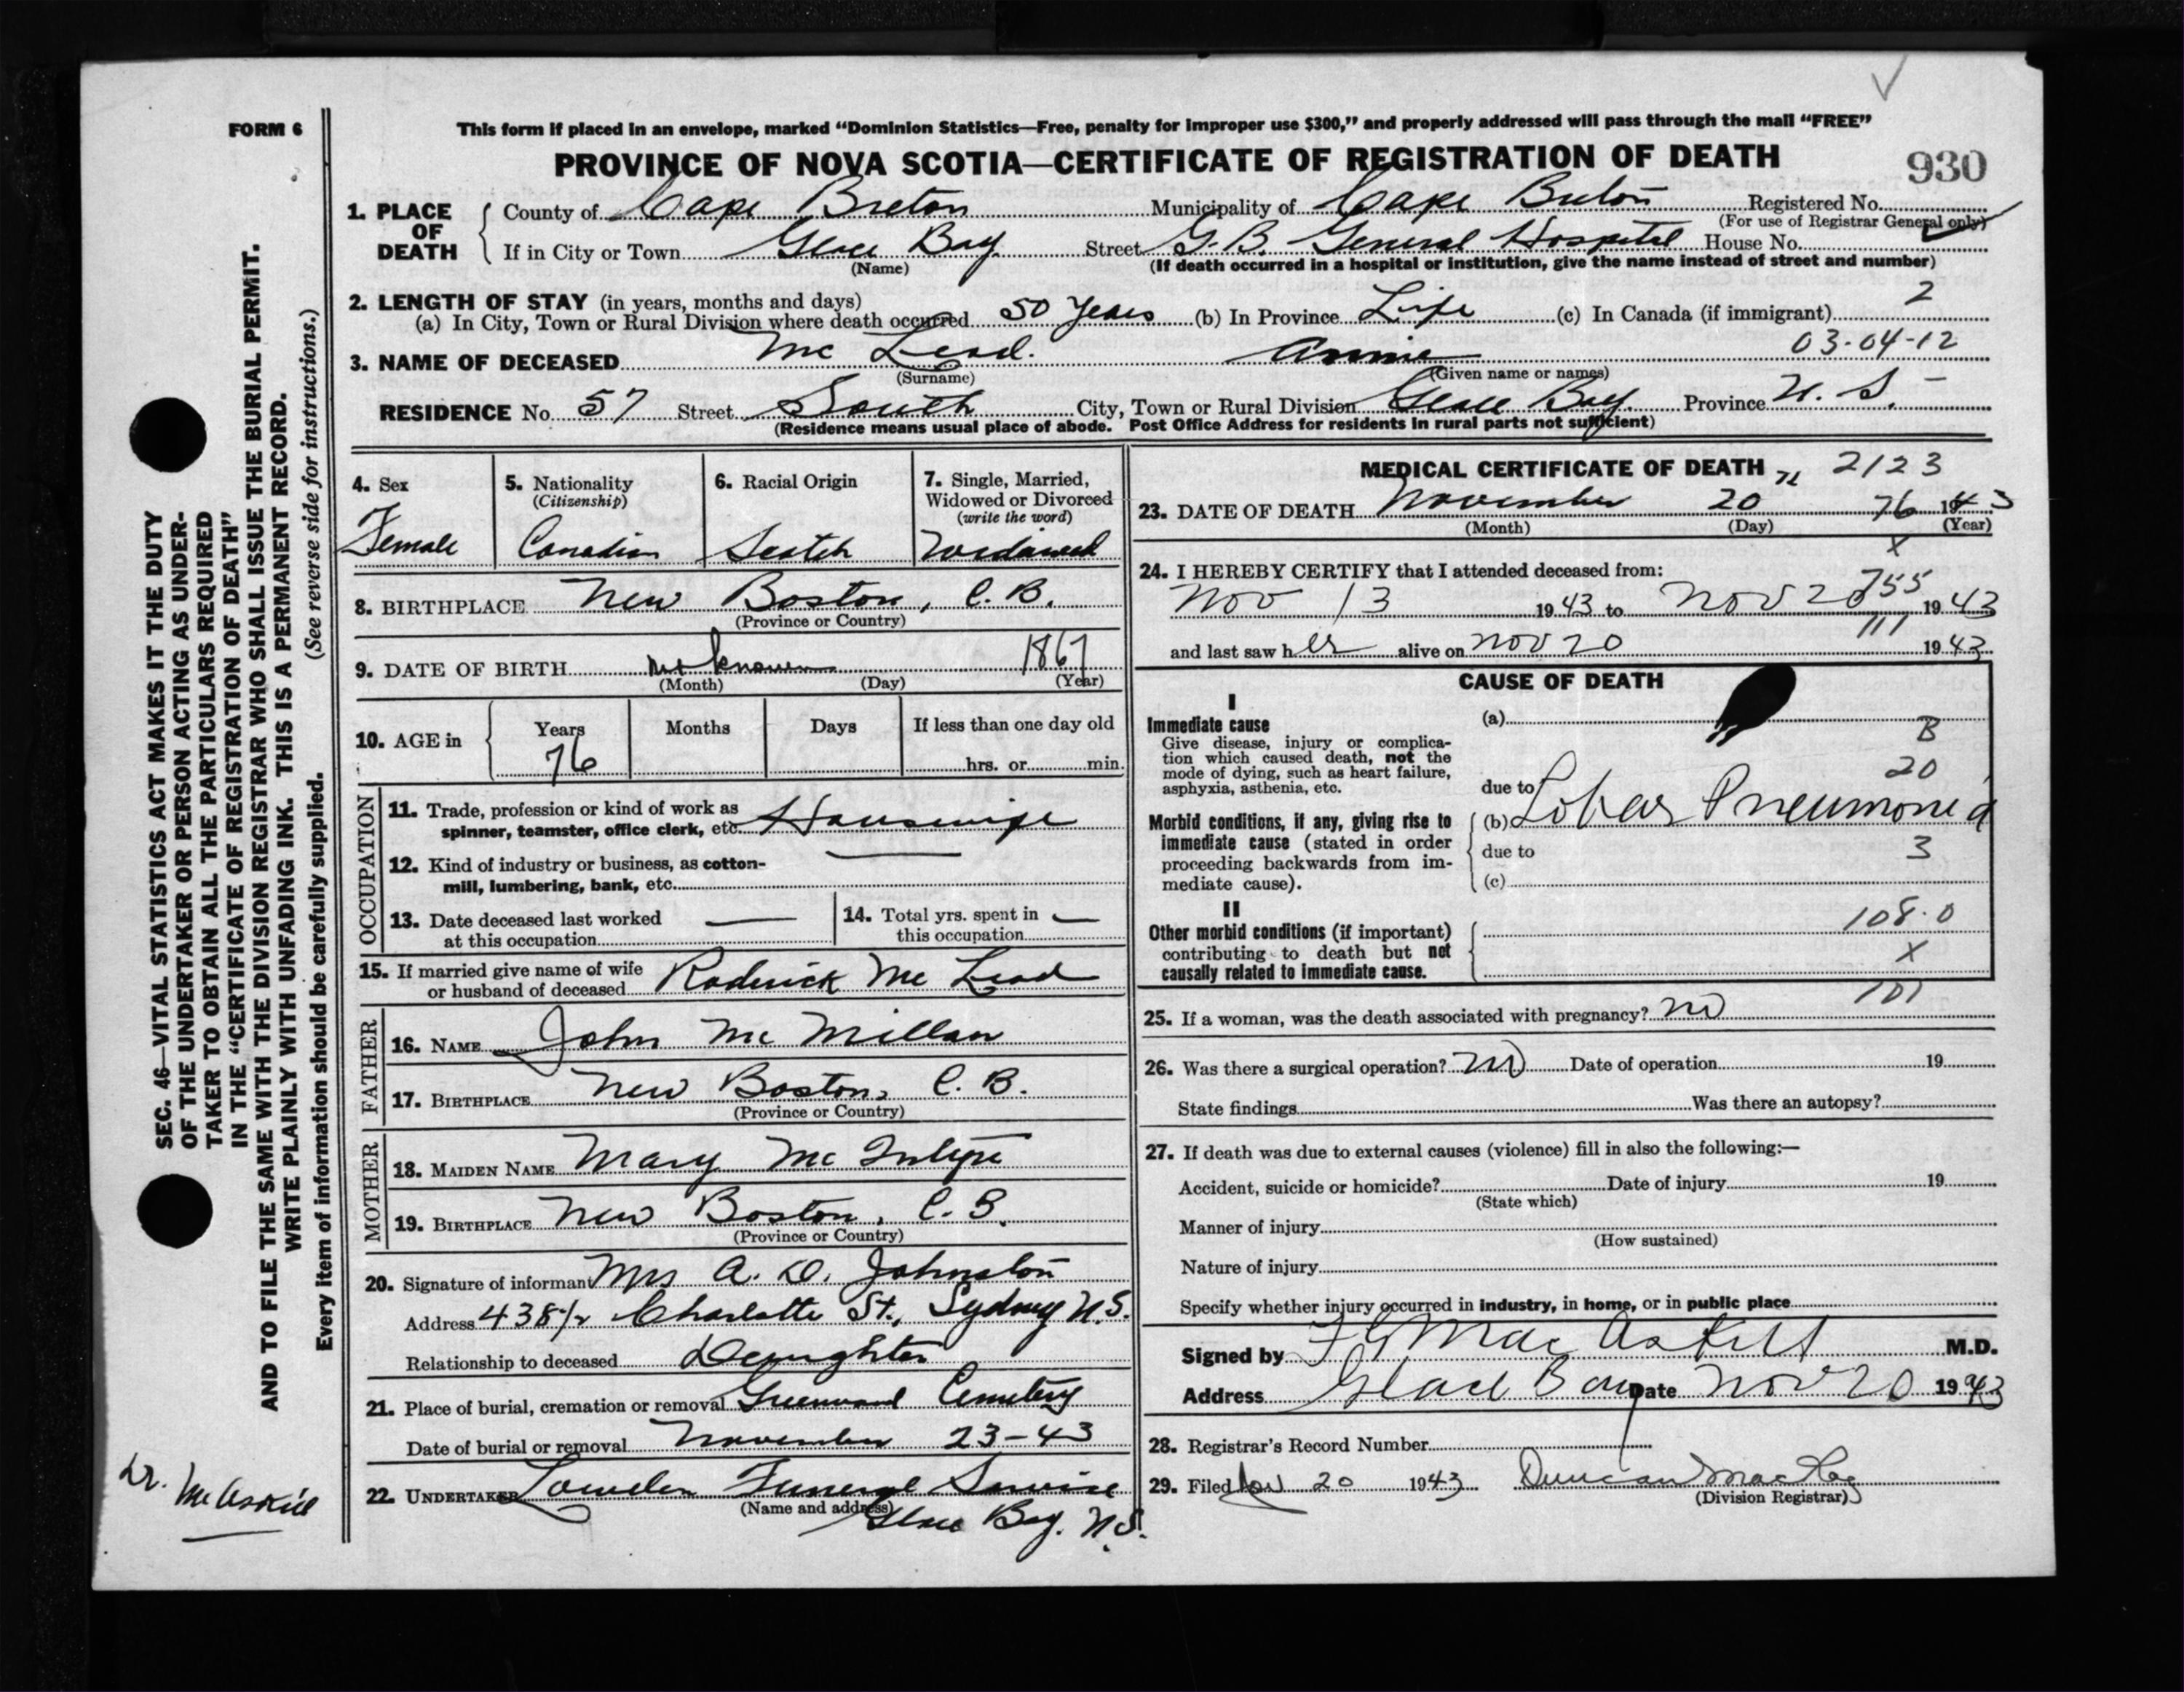 FORM 6
This form if placed in an envelope, marked “Dominion Statistics—Free, penalty for improper use $300,” and properly addressed will pass through the mail “FREE”
PROVINCE OF NOVA SCOTIA—CERTIFICATE OF REGISTRATION OF DEATH
930
1. PLACE OF DEATH
County of Cape Breton Municipality of Cape Breton Registered No.
(For use of Registrar General only)
If in City or Town Glace Bay Street G.B. General Hospital House No.
(Name) (If death occurred in a hospital or institution, give the name instead of street and number)
2. LENGTH OF STAY (in years, months and days) 2
(a) In City, Town or Rural Division where death occurred 50 Years (b) In Province Life (c) In Canada (if immigrant)
3. NAME OF DECEASED Mc Leod. Annie 03-04-12
(Surname) (Given name or names)
RESIDENCE No. 57 Street South City, Town or Rural Division Glace Bay. Province N. S.
(Residence means usual place of abode. Post Office Address for residents in rural parts not sufficient)
4. Sex
Female
5. Nationality
(Citizenship)
Canadian
6. Racial Origin
Scotch
7. Single, Married,
Widowed or Divorced
(write the word)
Widowed
8. BIRTHPLACE New Boston, C. B.
(Province or Country)
9. DATE OF BIRTH not known 1867
(Month) (Day) (Year)
10. AGE in
Years Months Days If less than one day old
76 hrs. or min.
OCCUPATION
11. Trade, profession or kind of work as
spinner, teamster, office clerk, etc. Housewife
12. Kind of industry or business, as cotton-
mill, lumbering, bank, etc. —
13. Date deceased last worked
at this occupation —
14. Total yrs. spent in
this occupation —
15. If married give name of wife
or husband of deceased Roderick Mc Leod
FATHER
16. NAME John Mc Millan
17. BIRTHPLACE New Boston, C. B.
(Province or Country)
MOTHER
18. MAIDEN NAME Mary Mc Intyre
19. BIRTHPLACE New Boston, C. B.
(Province or Country)
20. Signature of informant Mrs A. D. Johnston
Address 438½ Charlotte St., Sydney N.S.
Relationship to deceased Daughter
21. Place of burial, cremation or removal Greenwood Cemetery
Date of burial or removal November 23-43
22. UNDERTAKER Lowden Funeral Service
(Name and address)
Glace Bay. N.S.
MEDICAL CERTIFICATE OF DEATH 2123
23. DATE OF DEATH November 20 76 1943
(Month) (Day) (Year)
x
24. I HEREBY CERTIFY that I attended deceased from:
755
Nov 13 1943 to Nov 20 1943
111
and last saw her alive on Nov 20 1943
CAUSE OF DEATH
I
Immediate cause
Give disease, injury or complica-
tion which caused death, not the
mode of dying, such as heart failure,
asphyxia, asthenia, etc.
(a)
B
20
due to
Morbid conditions, if any, giving rise to
immediate cause (stated in order
proceeding backwards from im-
mediate cause).
(b) Lobar Pneumonia
due to 3
(c)
II
Other morbid conditions (if important)
contributing to death but not
causally related to immediate cause.
108.0
x
101
25. If a woman, was the death associated with pregnancy? no
26. Was there a surgical operation? no Date of operation 19
State findings Was there an autopsy?
27. If death was due to external causes (violence) fill in also the following:—
Accident, suicide or homicide? Date of injury 19
(State which)
Manner of injury
(How sustained)
Nature of injury
Specify whether injury occurred in industry, in home, or in public place
Signed by F G MacAskill M.D.
Address Glace Bay Date Nov 20 1943
28. Registrar's Record Number
29. Filed Nov 20 1943 Duncan
(Division Registrar)
SEC. 46—VITAL STATISTICS ACT MAKES IT THE DUTY
OF THE UNDERTAKER OR PERSON ACTING AS UNDER-
TAKER TO OBTAIN ALL THE PARTICULARS REQUIRED
IN THE “CERTIFICATE OF REGISTRATION OF DEATH”
AND TO FILE THE SAME WITH THE DIVISION REGISTRAR WHO SHALL ISSUE THE BURIAL PERMIT.
WRITE PLAINLY WITH UNFADING INK. THIS IS A PERMANENT RECORD.
Every item of information should be carefully supplied. (See reverse side for instructions.)
Dr. McAskill